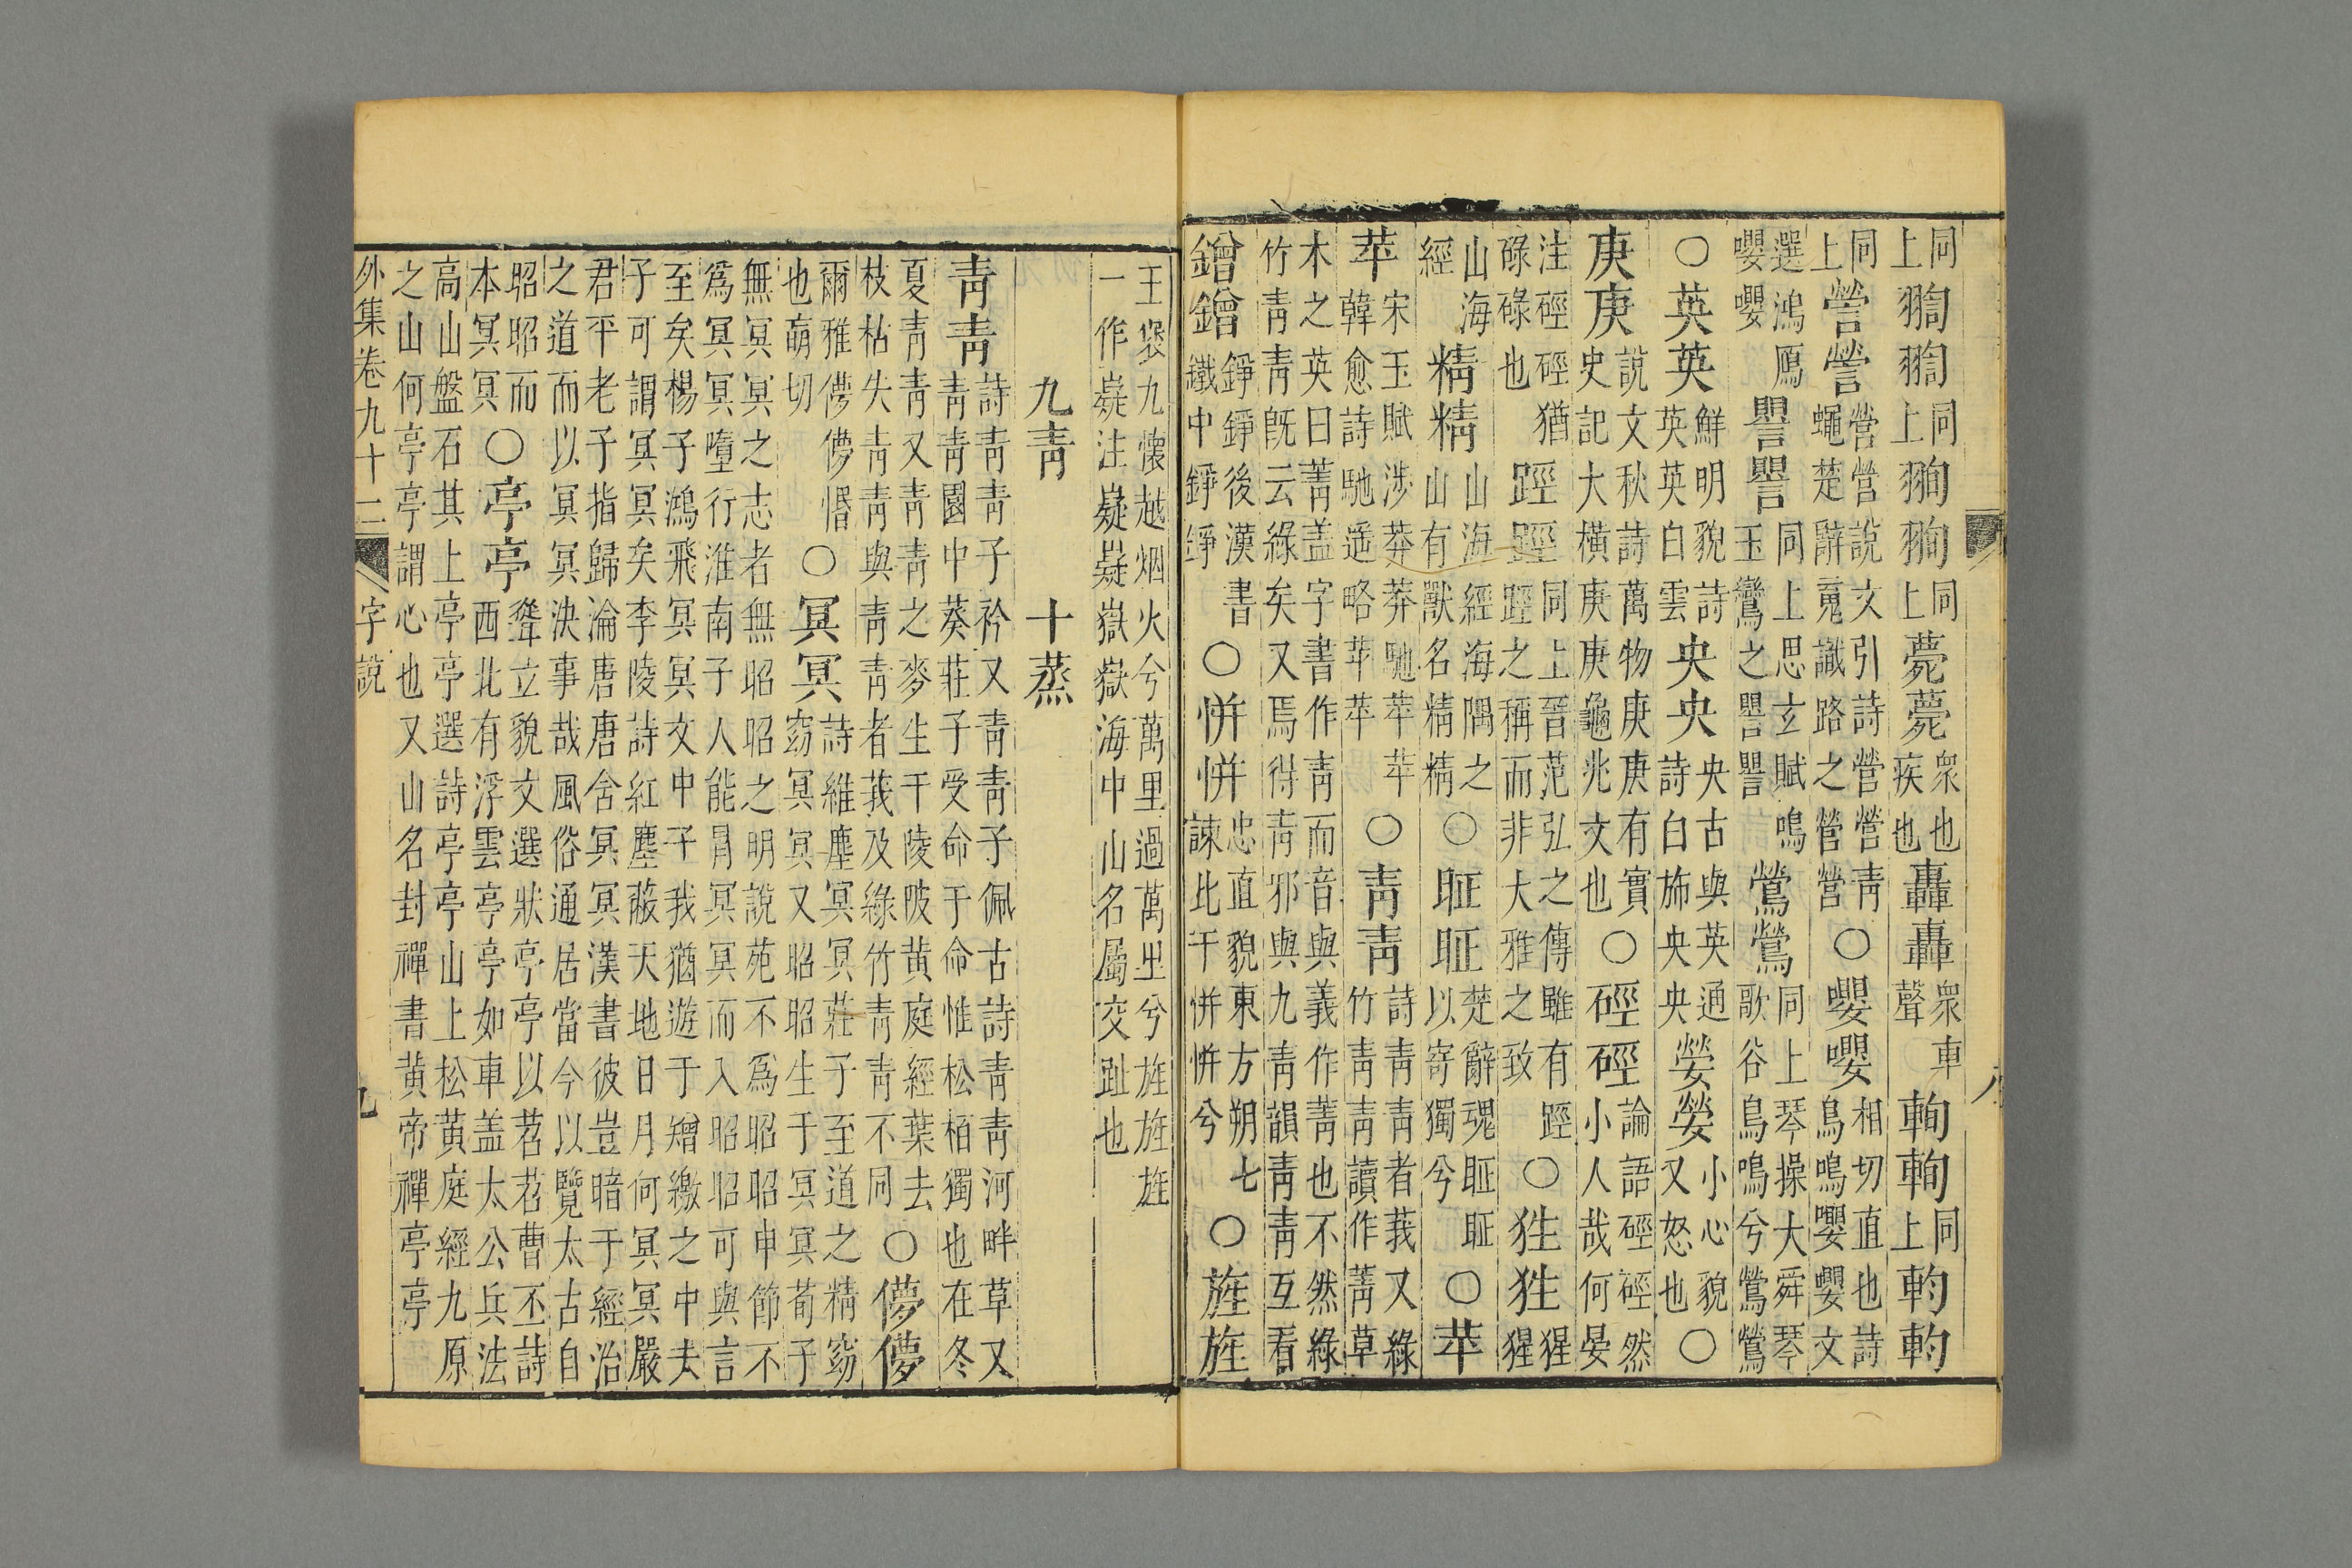 同上 同上 同上 薨薨 衆也疾也 轟轟 衆車聲 同上
同上 謍謍 營營說文引詩營營青蠅楚辭䰟識路之營營 ○嚶嚶 相切直也詩鳥鳴嚶嚶文
選鴻鴈嚶嚶 譻譻 同上思玄賦鳴玉鸞之譻譻 鶯鶯 同上琴操大舜琴歌谷鳥鳴兮鶯鶯
○英英 鮮明貌詩英英白雲 央央 央古與英通詩白斾央央 嫈嫈 小心貌又怒也 ○
庚庚 說文秋詩萬物庚庚有實史記大橫庚庚龜兆文也 ○硜硜 論語硜硜然小人哉何晏
注硜硜猶碌碌也 踁踁 同上晉范弘之傳雖有踁踁之稱而非大雅之致 ○狌狌 猩猩
山海經 精精 山海經海隅之山有獸名精精 ○眐眐 楚辭魂眐眐以寄獨兮 ○苹
苹 宋玉賦涉莽莽馳苹苹韓愈詩馳遥略苹苹 ○青青 詩青青者莪又綠竹青青讀作菁草
木之英曰菁盖字書作青而音與義作菁也不然綠竹青青旣云綠矣又焉得青邪與九青韻青青互看
鏳鏳 錚錚後漢書鐵中錚錚 ○恲恲 忠直貌東方朔七諫此干恲恲兮 ○旌旌
八
王褒九懷越烟火兮萬里過萬里兮旌旌旌一作嶷注嶷嶷嶽嶽海中山名屬交趾也
九青 十蒸
青青 詩青青子衿又青青子佩古詩青青河畔草又青青園中葵莊子受命于命惟松栢獨也在冬
夏青青又青青之麥生干陵陂黄庭經葉去枝枯失青青與青青者莪及綠竹青青不同 ○儚儚
爾雅儚儚惛也萌切 ○冥冥 詩維塵冥冥莊子至道之精窈窈冥冥又昭昭生于冥冥荀子
無冥冥之志者無昭昭之明說苑不爲昭昭申節不爲冥冥墮行淮南子人能胃冥冥而入昭昭可與言
至矣楊子鴻飛冥冥文中子我猶遊于矰繳之中夫子可謂冥冥矣李陵詩紅塵蔽天地日月何冥冥嚴
君平老子指歸淪唐唐舍冥冥漢書彼豈暗于經治之道而以冥冥決事哉風俗通居當今以覽太古自
昭昭而本冥冥 ○亭亭 聳立貌文選狀亭亭以苕苕曹丕詩西北有浮雲亭亭如車盖太公兵法
高山盤石其上亭亭選詩亭亭山上松黄庭經九原之山何亭亭謂心也又山名封禪書黄帝禪亭亭
外集卷九十二 字說 九